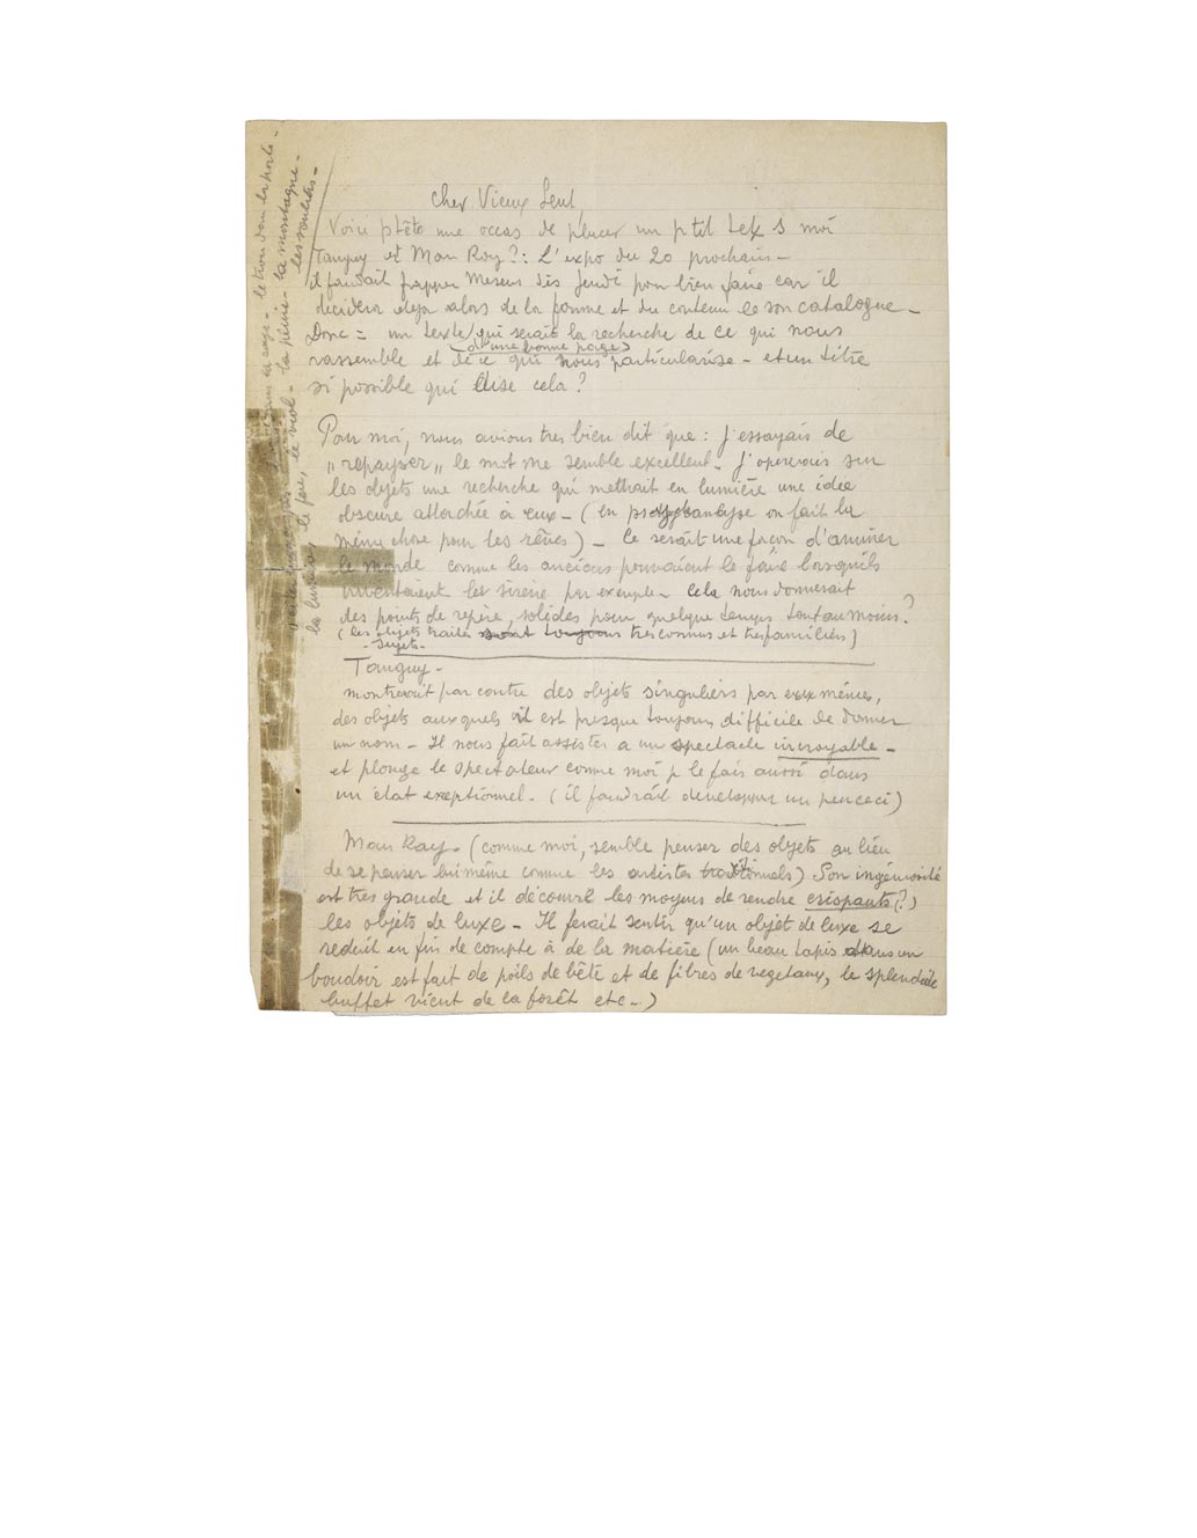 Cher Vieux Seul,
Voici ptête une occas de placer un ptit tex S moi
Tanguy et Man Ray?: L'expo du 20 prochain –
il faudrait frapper Mesens dès jeudi pour bien faire car il
décidera deja alors de la forme et du contenu de son catalogue –
Donc = un texte qui serait la recherche de ce qui nous
(d'une bonne page)
rassemble et de ce qui nous particularise – et un titre
si possible qui dise cela ?
Pour moi, nous avions tres bien dit que : J'essayais de
"repayser" le mot me semble excellent – J'opererais sur
les objets une recherche qui mettrait en lumière une idée
obscure attachée à eux – (en psychanalyse on fait la
même chose pour les rêves) – Ce serait une façon d'animer
le monde comme les anciens pouvaient le faire lorsqu'ils
inventaient les sirène par exemple – Cela nous donnerait
des points de repère, solides pour quelque temps tout au moins. ?
(les objets traités sont toujours tres connus et tres familiers)
– sujets –
Tanguy –
montrerait par contre des objets singuliers par eux mêmes,
des objets auxquels il est presque toujours difficile de donner
un nom – Il nous fait assister a un spectacle incroyable –
et plonge le spectateur comme moi je le fais aussi dans
un état exeptionnel. (il faudrait developper un peu ceci)
Man Ray – (comme moi, semble penser des objets au lieu
de se penser lui même comme les artistes traditionnels) Son ingéniosité
est tres grande et il découvre les moyens de rendre crispants (?)
les objets de luxe – Il ferait sentir qu'un objet de luxe se
reduit en fin de compte à de la matière (un beau tapis dans un
boudoir est fait de poils de bête et de fibres de vegetaux, le splendide
buffet vient de la forêt etc –)
la lumière, le feu, le viol – la pluie – la montagne –
les souliers –
en cage – le trou dans la porte –